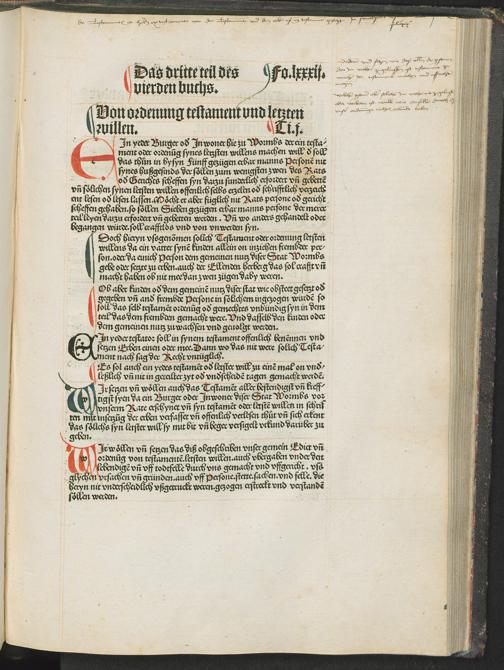 Das dritte teil des Fo.lxxxij.
vierden buchs.
Von ordenung testament vnd letzten
willen. Ti.j.
Ein yeder Burger od Inwoner hie zu Wormbs der ein testa-
ment oder ordenūg synes letzsten willens machen will d soll
das thün in bysyn Fünff gezügen erbar manns Personē nit
synes hußgesinds der söllen zum wenigsten zwen des Rats
od Gerichts scheffen syn darzu sunderlich erfordert vn̄ gebettē
vn̄ sölichen synen letsten willen offenlich selbs erzelen od schrifftlich verzeich
ent lesen od lesen lassen. Möcht er aber füglich nit Rats persone od gericht
scheffen gehaben. so söllen Sieben gezügen erbar manns persone der merer
teil leyen darzu erfordert vn̄ gebetten werden. Vn̄ wo anders gehandelt oder
begangen würde. soll crafftlos vnd von vnwerden syn.
Doch hieryn vßgenōmen solich Testament oder ordenung letsten
willens da ein vatter synē kinden allein on inziehen frembder per-
son. oder da einich Person dem gemeinen nutz diser Stat Wormbs
gebe oder setzt zu erben. auch der Ellenden herberg das sol crafft vn̄
macht haben ob nit mer dan zwen zügen daby weren.
Ob aber kinden od dem gemeinē nutz diser stat wie obsteet gesetzt od
gegeben vn̄ and frembde Persone in sölichem ingezogen würdē so
soll das selb testamēt ordenūg od gemechtes vnbündig syn in dem
teil das dem frembden gemacht were. Vnd dasselb den kinden oder
dem gemeinen nutz zu wachsen vnd geuolgt werden.
Ein yeder testator soll in synem testament offentlich benēnen vnd
setzen Erben einen oder mee. Dann wo das nit were solich Testa-
ment nach sag der Recht vnnüglich.
Es sol auch ein yedes testamēt od letster will zu einē mal on vnd-
leßlich vn̄ nit in geteilter zyt od vndscheidē tagen gemacht werdē.
Wir setzen vn̄ wöllen auch das Testamēt aller bestendigst vn̄ kreff-
tigst syn da ein Burger oder Inwoner diser Stat Wormbs vor
vnserm Rate erschynet vn̄ syn testamēt oder letstē willen in schriff
ten mit inseczūg der erben verfasset vn̄ offentlich verlesen thüt vn̄ sich erkent
das sölichs syn letster will sy mit bit vn̄ beger versigelt vrkund darüber zu
geben.
Wir wöllen vn̄ setzen das diß obgeschriben vnser gemein Edict vn̄
ordenūg von testamentē. letsten willen. auch vbergaben vnder den
lebendigē vn̄ vff todsfelle durch vns gemacht vnd vffgericht. vß
glychen vrsachen vn̄ gründen. auch vff Persone. stette. sachen. vnd felle. die
heryn nit vnderscheidlich vßgetruckt weren. gezogen erstreckt vnd verstandē
söllen werden.